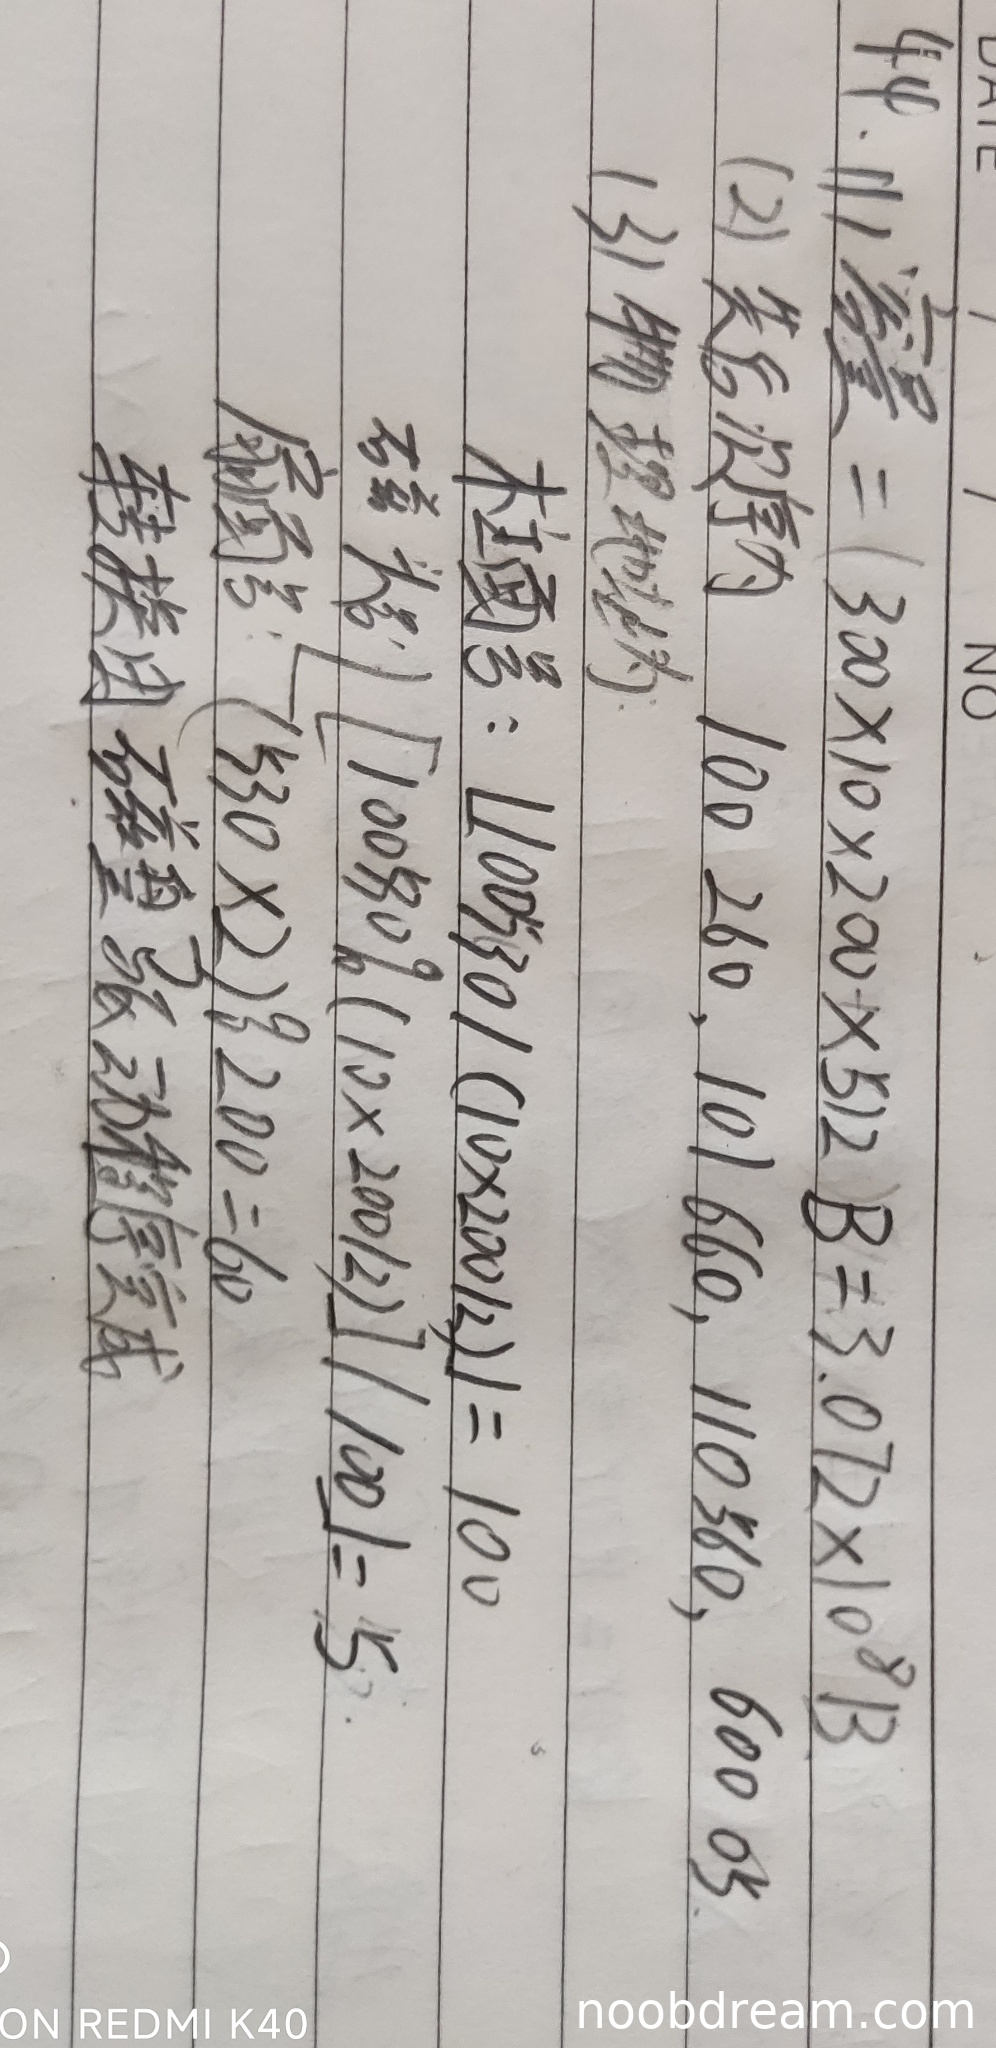 DATE / / NO
44. (1) 容量 = (300×10×200×512)B = 3.072×10⁸B
(2) 先后次序为 100 260, 101 660, 110 560, 600 05.
(3) 物理地址为:
柱面号: ⌊100530/(10×200/2)⌋ = 100
磁头号: ⌊[100530%(10×200/2)]/100⌋ = 5.
扇面号: (530×2)%200 = 60
转换由磁盘驱动程序完成
ON REDMI K40
noobdream.com